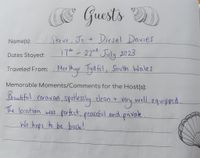 Guests
Name(s): Steve, Jo + Diesel Davies
Dates Stayed: 17th - 22nd July 2023
Traveled From: Merthyr Tydfil, South Wales
Memorable Moments/Comments for the Host(s):
Beautiful caravan, spotlessly clean + very well equipped.
The location was perfect, peaceful and private.
We hope to be back!